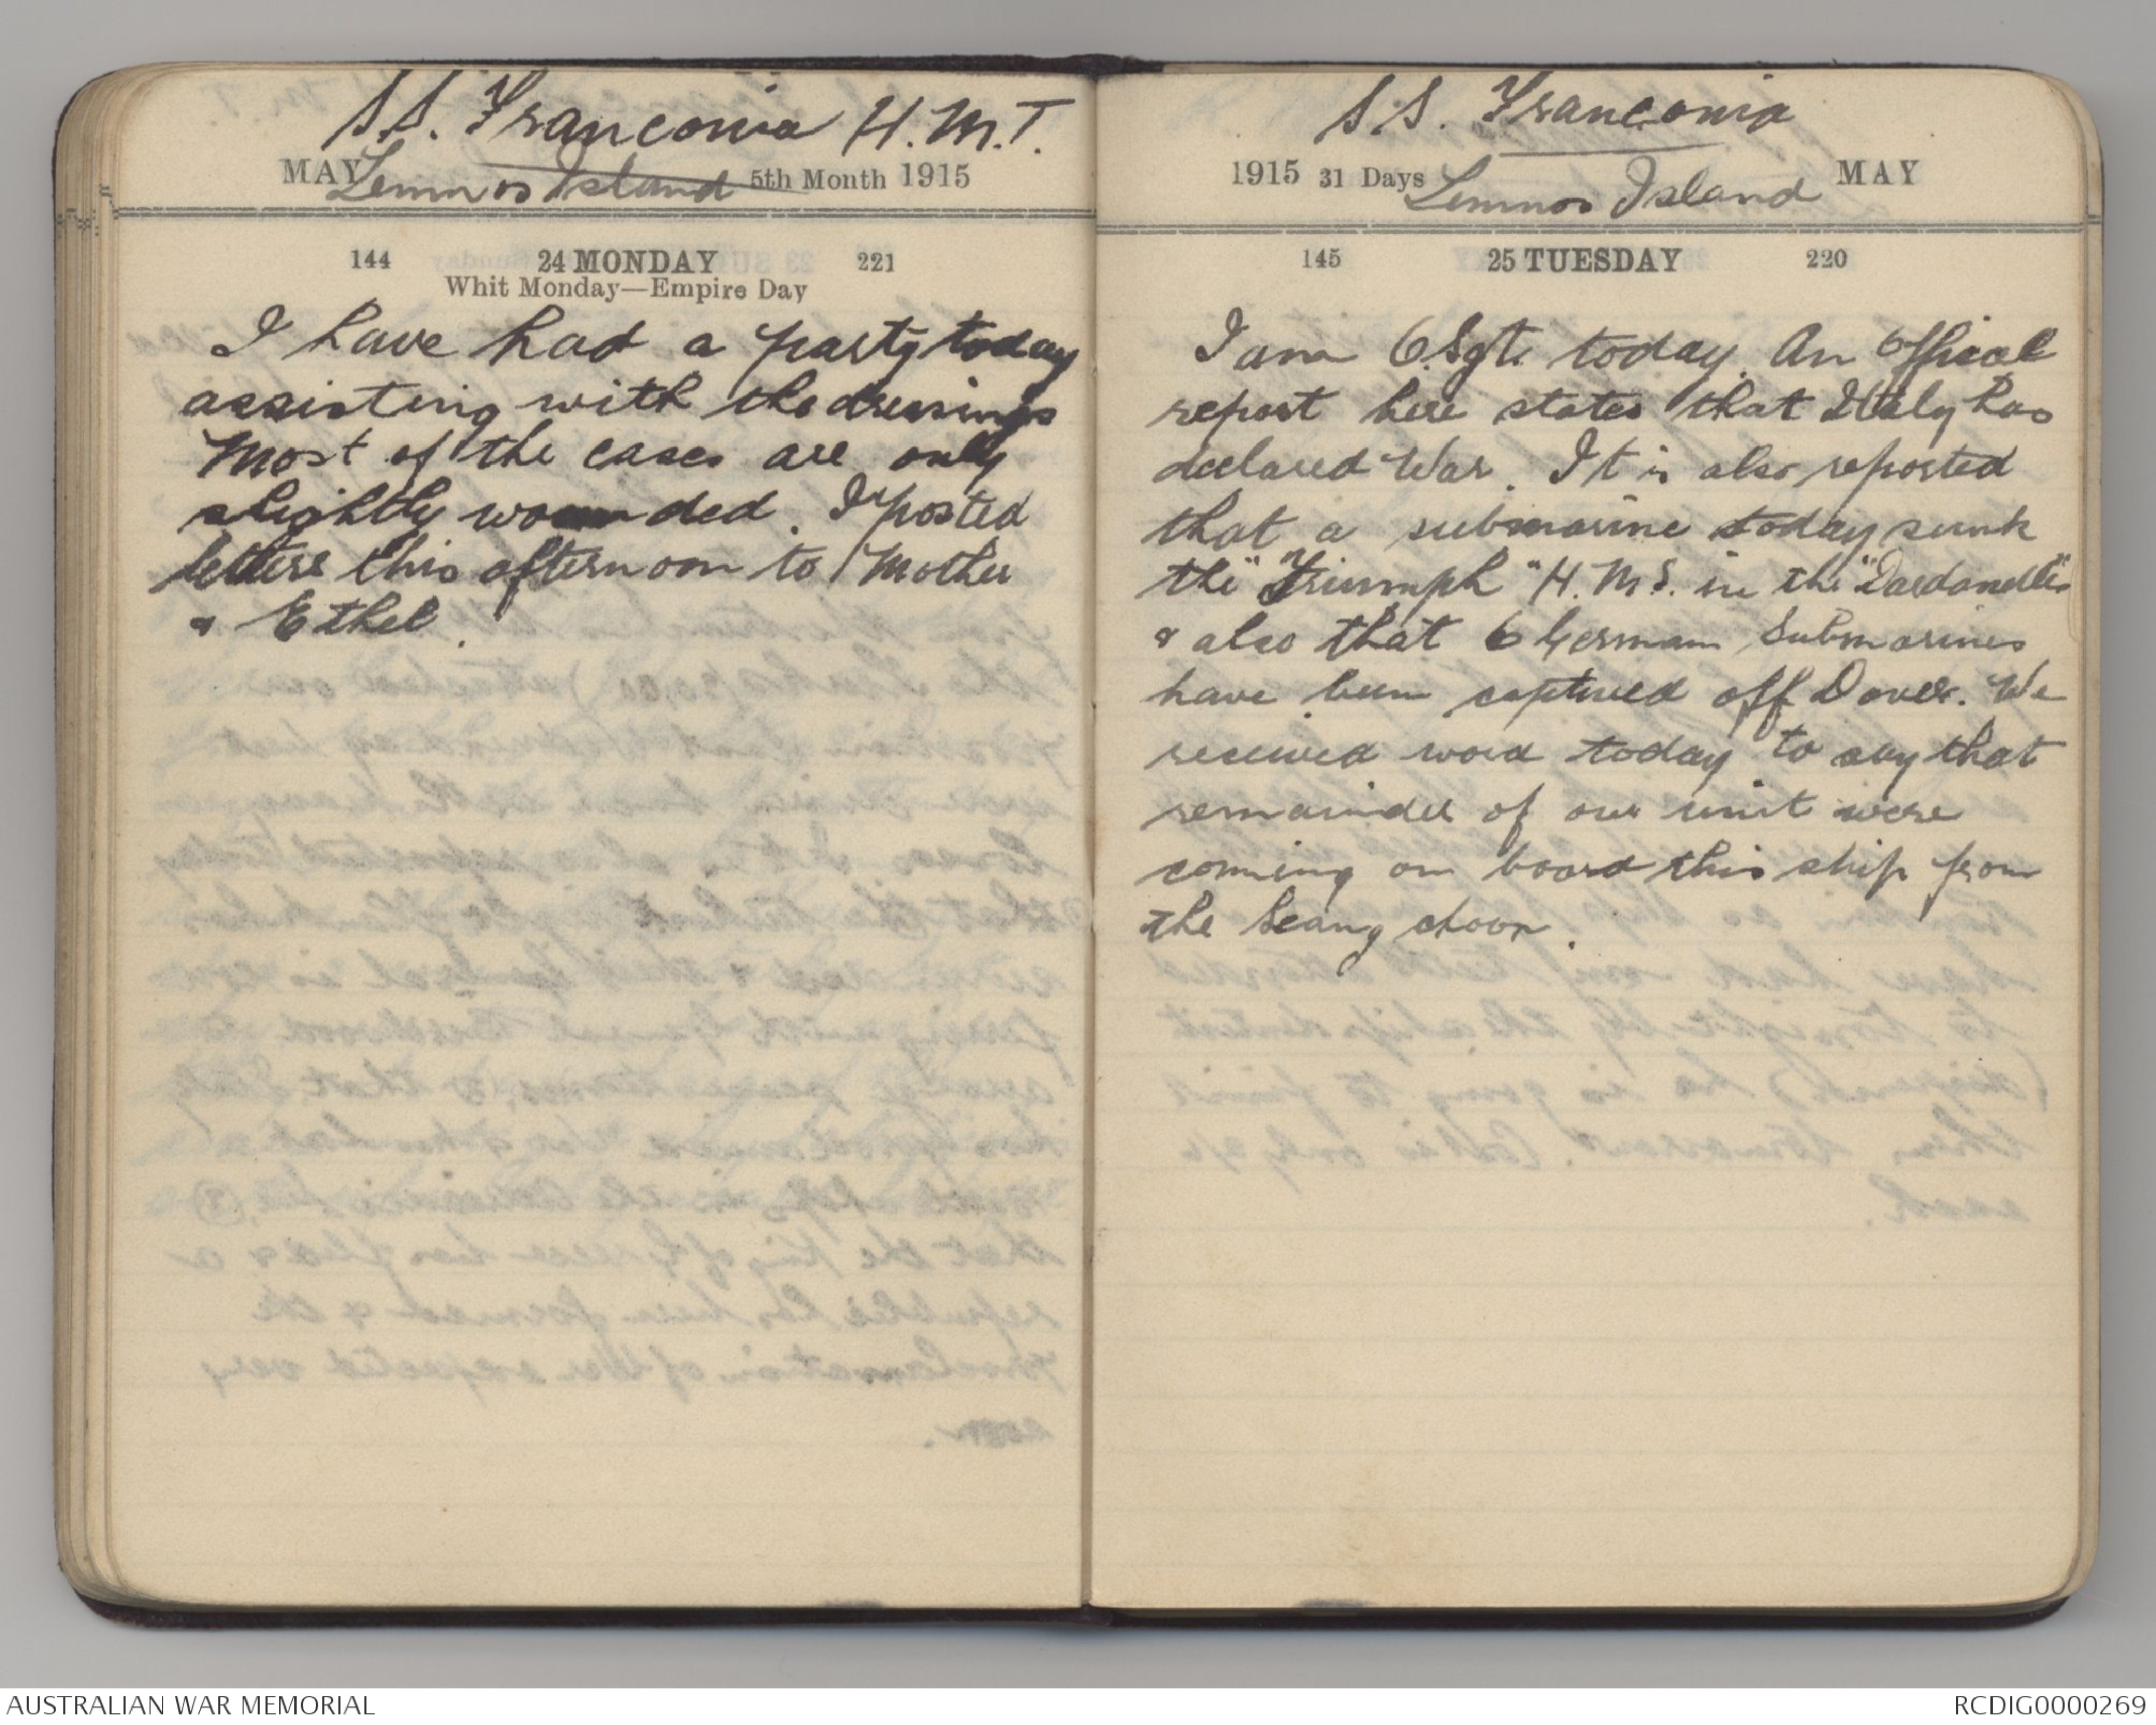 S.S. Franconia H.M.T.
MAY Lemnos Island 5th Month 1915
144 24 MONDAY 221
Whit Monday—Empire Day
I have had a party today
assisting with the dressings
Most of the cases are only
slightly wounded. I posted
letters this afternoon to Mother
& Ethel.
S.S. Franconia
1915 31 Days Lemnos Island MAY
145 25 TUESDAY 220
I am O.Sgt. today. An Offical
report here states that Italy has
declared War. It is also reported
that a submarine today sunk
the "Triumph" H.M.S. in the "Dardanelles"
& also that 6 German Submarines
have been captured off Dover. We
received word today to say that
remainder of our unit were
coming on board this ship from
the Seang choon.
AUSTRALIAN WAR MEMORIAL
RCDIG0000269